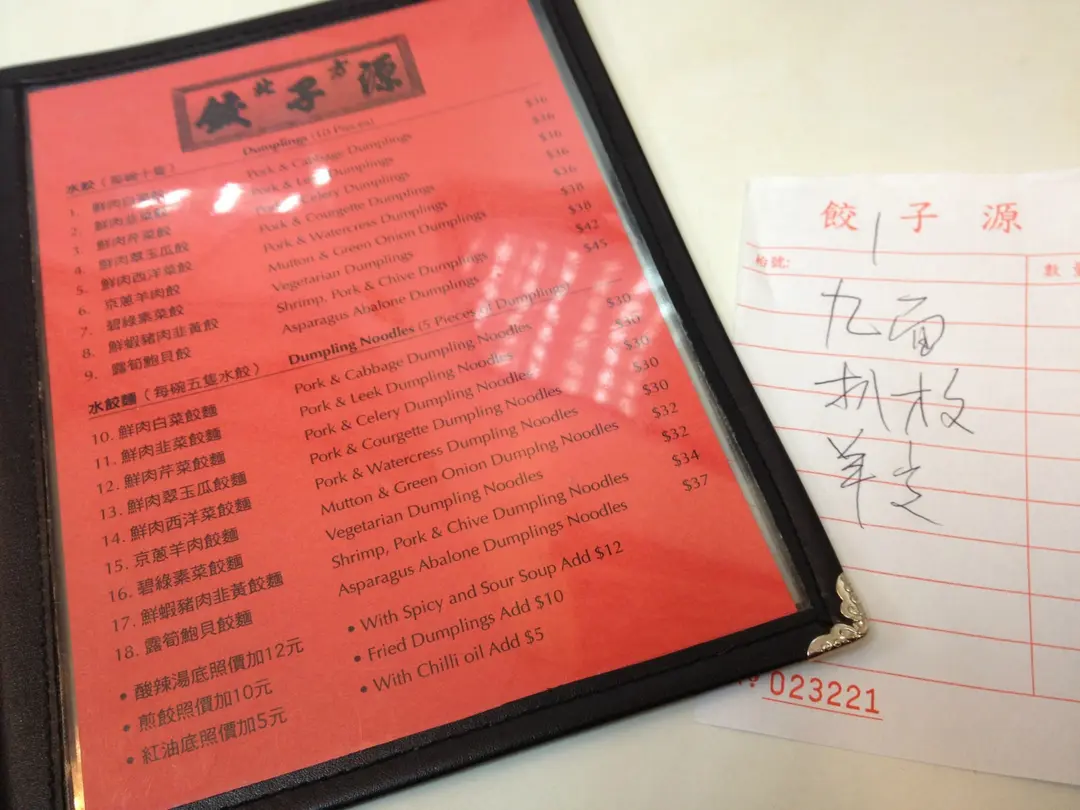 餃北子方源
水餃（每碗十隻） Dumplings (10 Pieces)
1. 鮮肉白菜餃 Pork & Cabbage Dumplings $36
2. 鮮肉韭菜餃 Pork & Leek Dumplings $36
3. 鮮肉芹菜餃 Pork & Celery Dumplings $36
4. 鮮肉翠玉瓜餃 Pork & Courgette Dumplings $36
5. 鮮肉西洋菜餃 Pork & Watercress Dumplings $36
6. 京蔥羊肉餃 Mutton & Green Onion Dumplings $38
7. 碧綠素菜餃 Vegetarian Dumplings $38
8. 鮮蝦豬肉韭黃餃 Shrimp, Pork & Chive Dumplings $42
9. 露筍鮑貝餃 Asparagus Abalone Dumplings $45
水餃麵（每碗五隻水餃） Dumpling Noodles (5 Pieces of Dumplings)
10. 鮮肉白菜餃麵 Pork & Cabbage Dumpling Noodles $30
11. 鮮肉韭菜餃麵 Pork & Leek Dumpling Noodles $30
12. 鮮肉芹菜餃麵 Pork & Celery Dumpling Noodles $30
13. 鮮肉翠玉瓜餃麵 Pork & Courgette Dumpling Noodles $30
14. 鮮肉西洋菜餃麵 Pork & Watercress Dumpling Noodles $30
15. 京蔥羊肉餃麵 Mutton & Green Onion Dumplng Noodles $32
16. 碧綠素菜餃麵 Vegetarian Dumpling Noodles $32
17. 鮮蝦豬肉韭黃餃麵 Shrimp, Pork & Chive Dumpling Noodles $34
18. 露筍鮑貝餃麵 Asparagus Abalone Dumplings Noodles $37
• 酸辣湯底照價加12元 • With Spicy and Sour Soup Add $12
• 煎餃照價加10元 • Fried Dumplings Add $10
• 紅油底照價加5元 • With Chilli oil Add $5
餃子源
枱號: 1
九面
023221